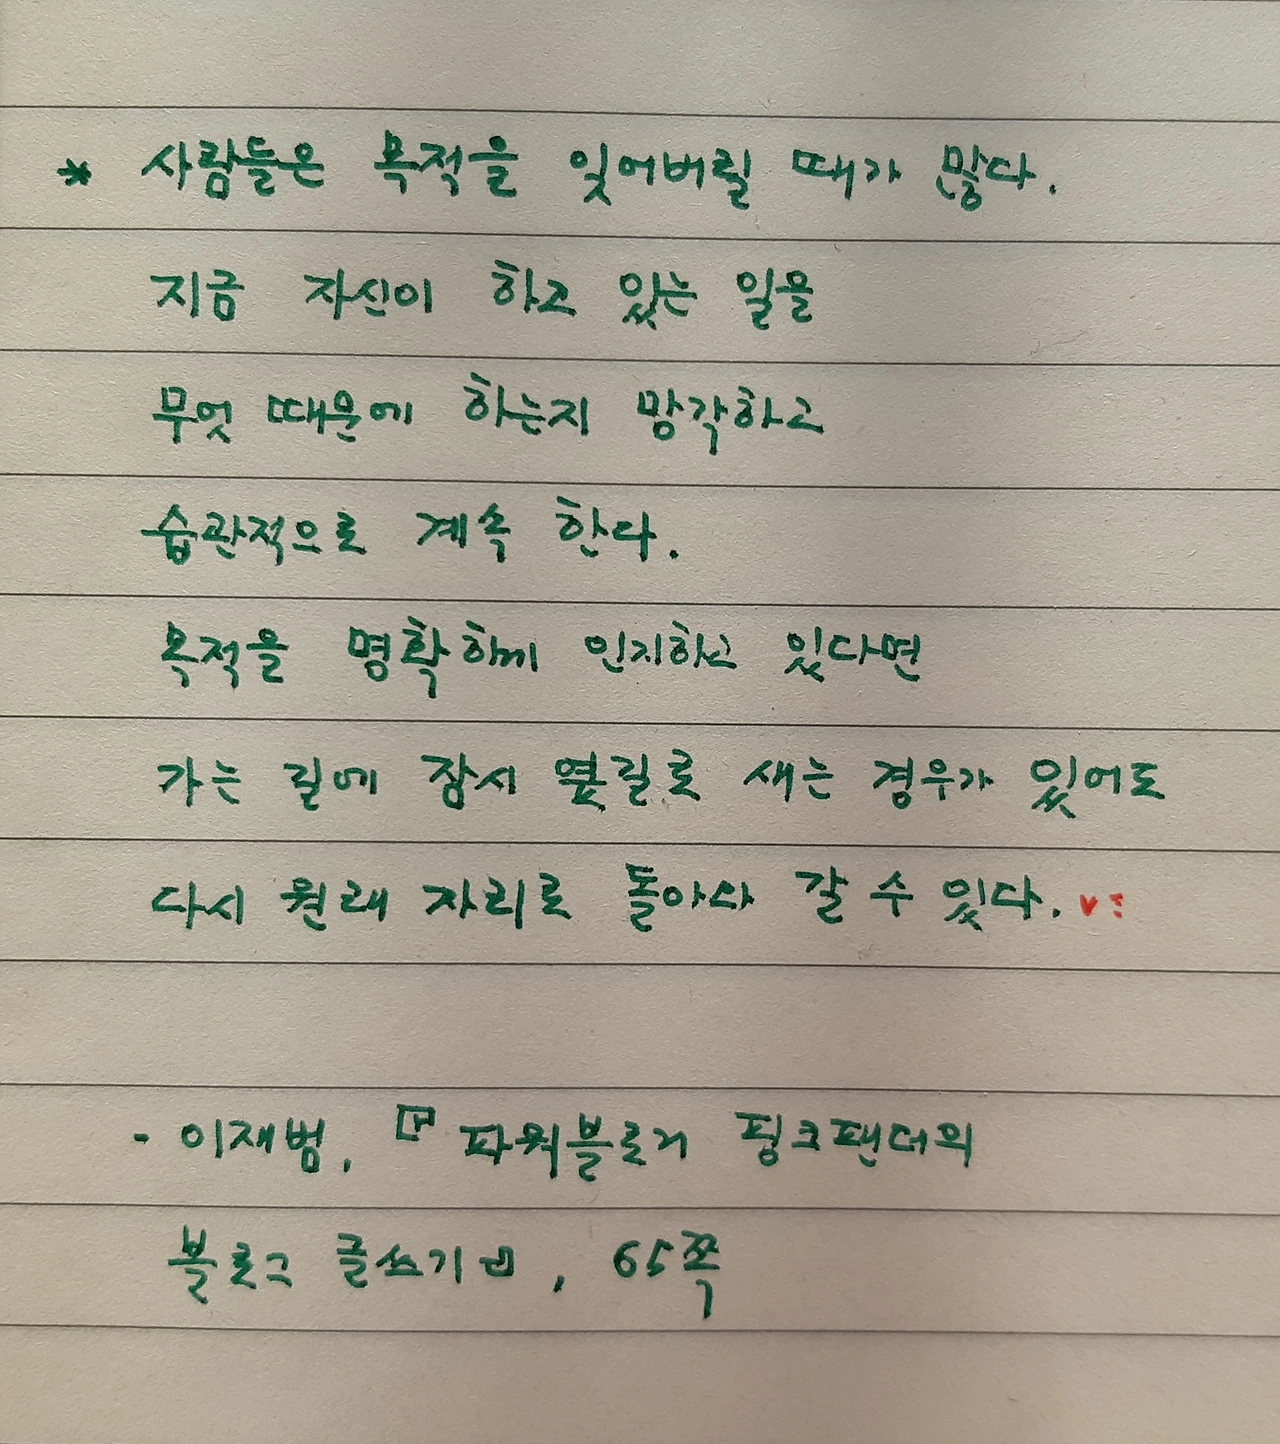 * 사람들은 목적을 잊어버릴 때가 많다.
지금 자신이 하고 있는 일을
무엇 때문에 하는지 망각하고
습관적으로 계속 한다.
목적을 명확하게 인지하고 있다면
가는 길에 잠시 옆길로 새는 경우가 있어도
다시 원래 자리로 돌아와 갈 수 있다.
- 이재범, 『파워블로거 핑크팬더의
블로그 글쓰기』, 65쪽